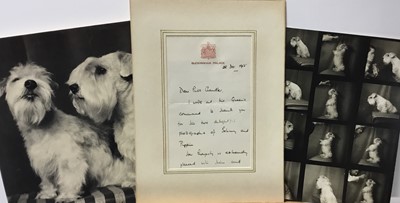 BUCKINGHAM PALACE
Dear Miss
I send at the Queen's
command to thank you
for the two delightful
photographs of Johnny and
Pippin
Her Majesty is extremely
pleased with them and